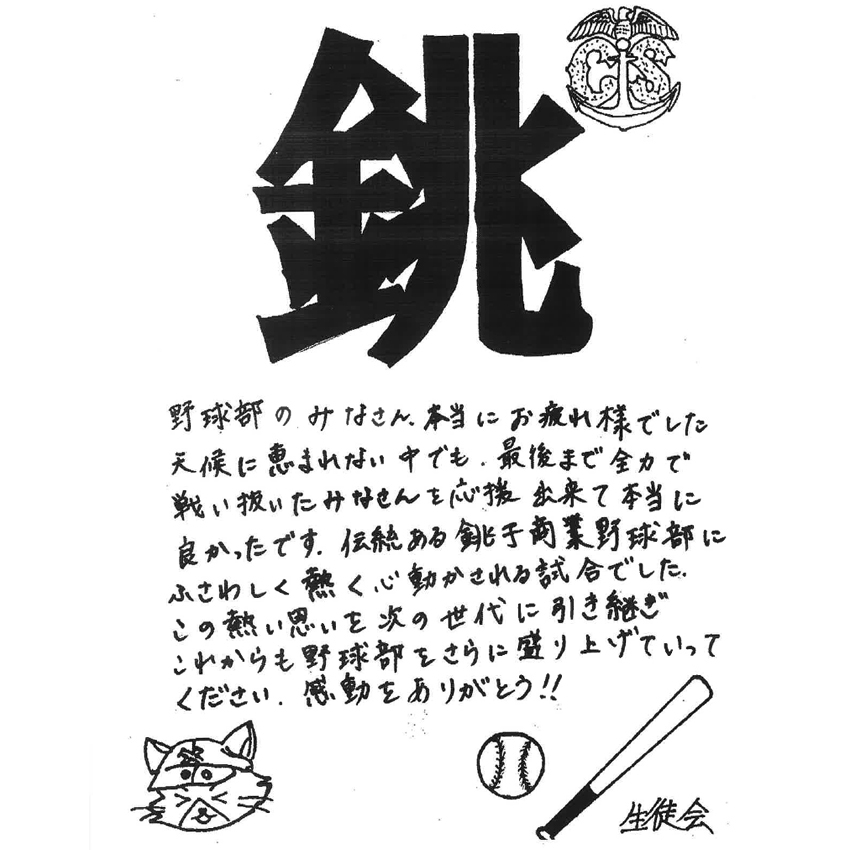 銚
CS
野球部のみなさん、本当にお疲れ様でした
天候に恵まれない中でも、最後まで全力で
戦い抜いたみなさんを応援出来て本当に
良かったです。伝統ある銚子商業野球部に
ふさわしく熱く心動かされる試合でした。
この熱い思いを次の世代に引き継ぎ
これからも野球部をさらに盛り上げていって
ください。感動をありがとう!!
生徒会